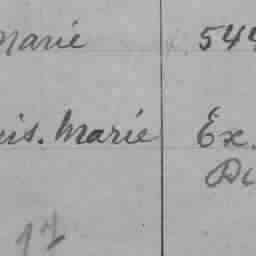 Marie 544
is. Marie Ex.
Di
17